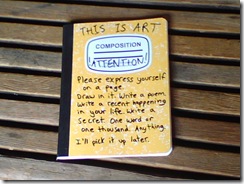 THIS IS ART
COMPOSITION
ATTENTION!
Please express yourself
on a page.
Draw in it. Write a poem.
Write a recent happening
in your life. Write a
Secret. One word or
one thousand. Anything.
I'll pick it up later.